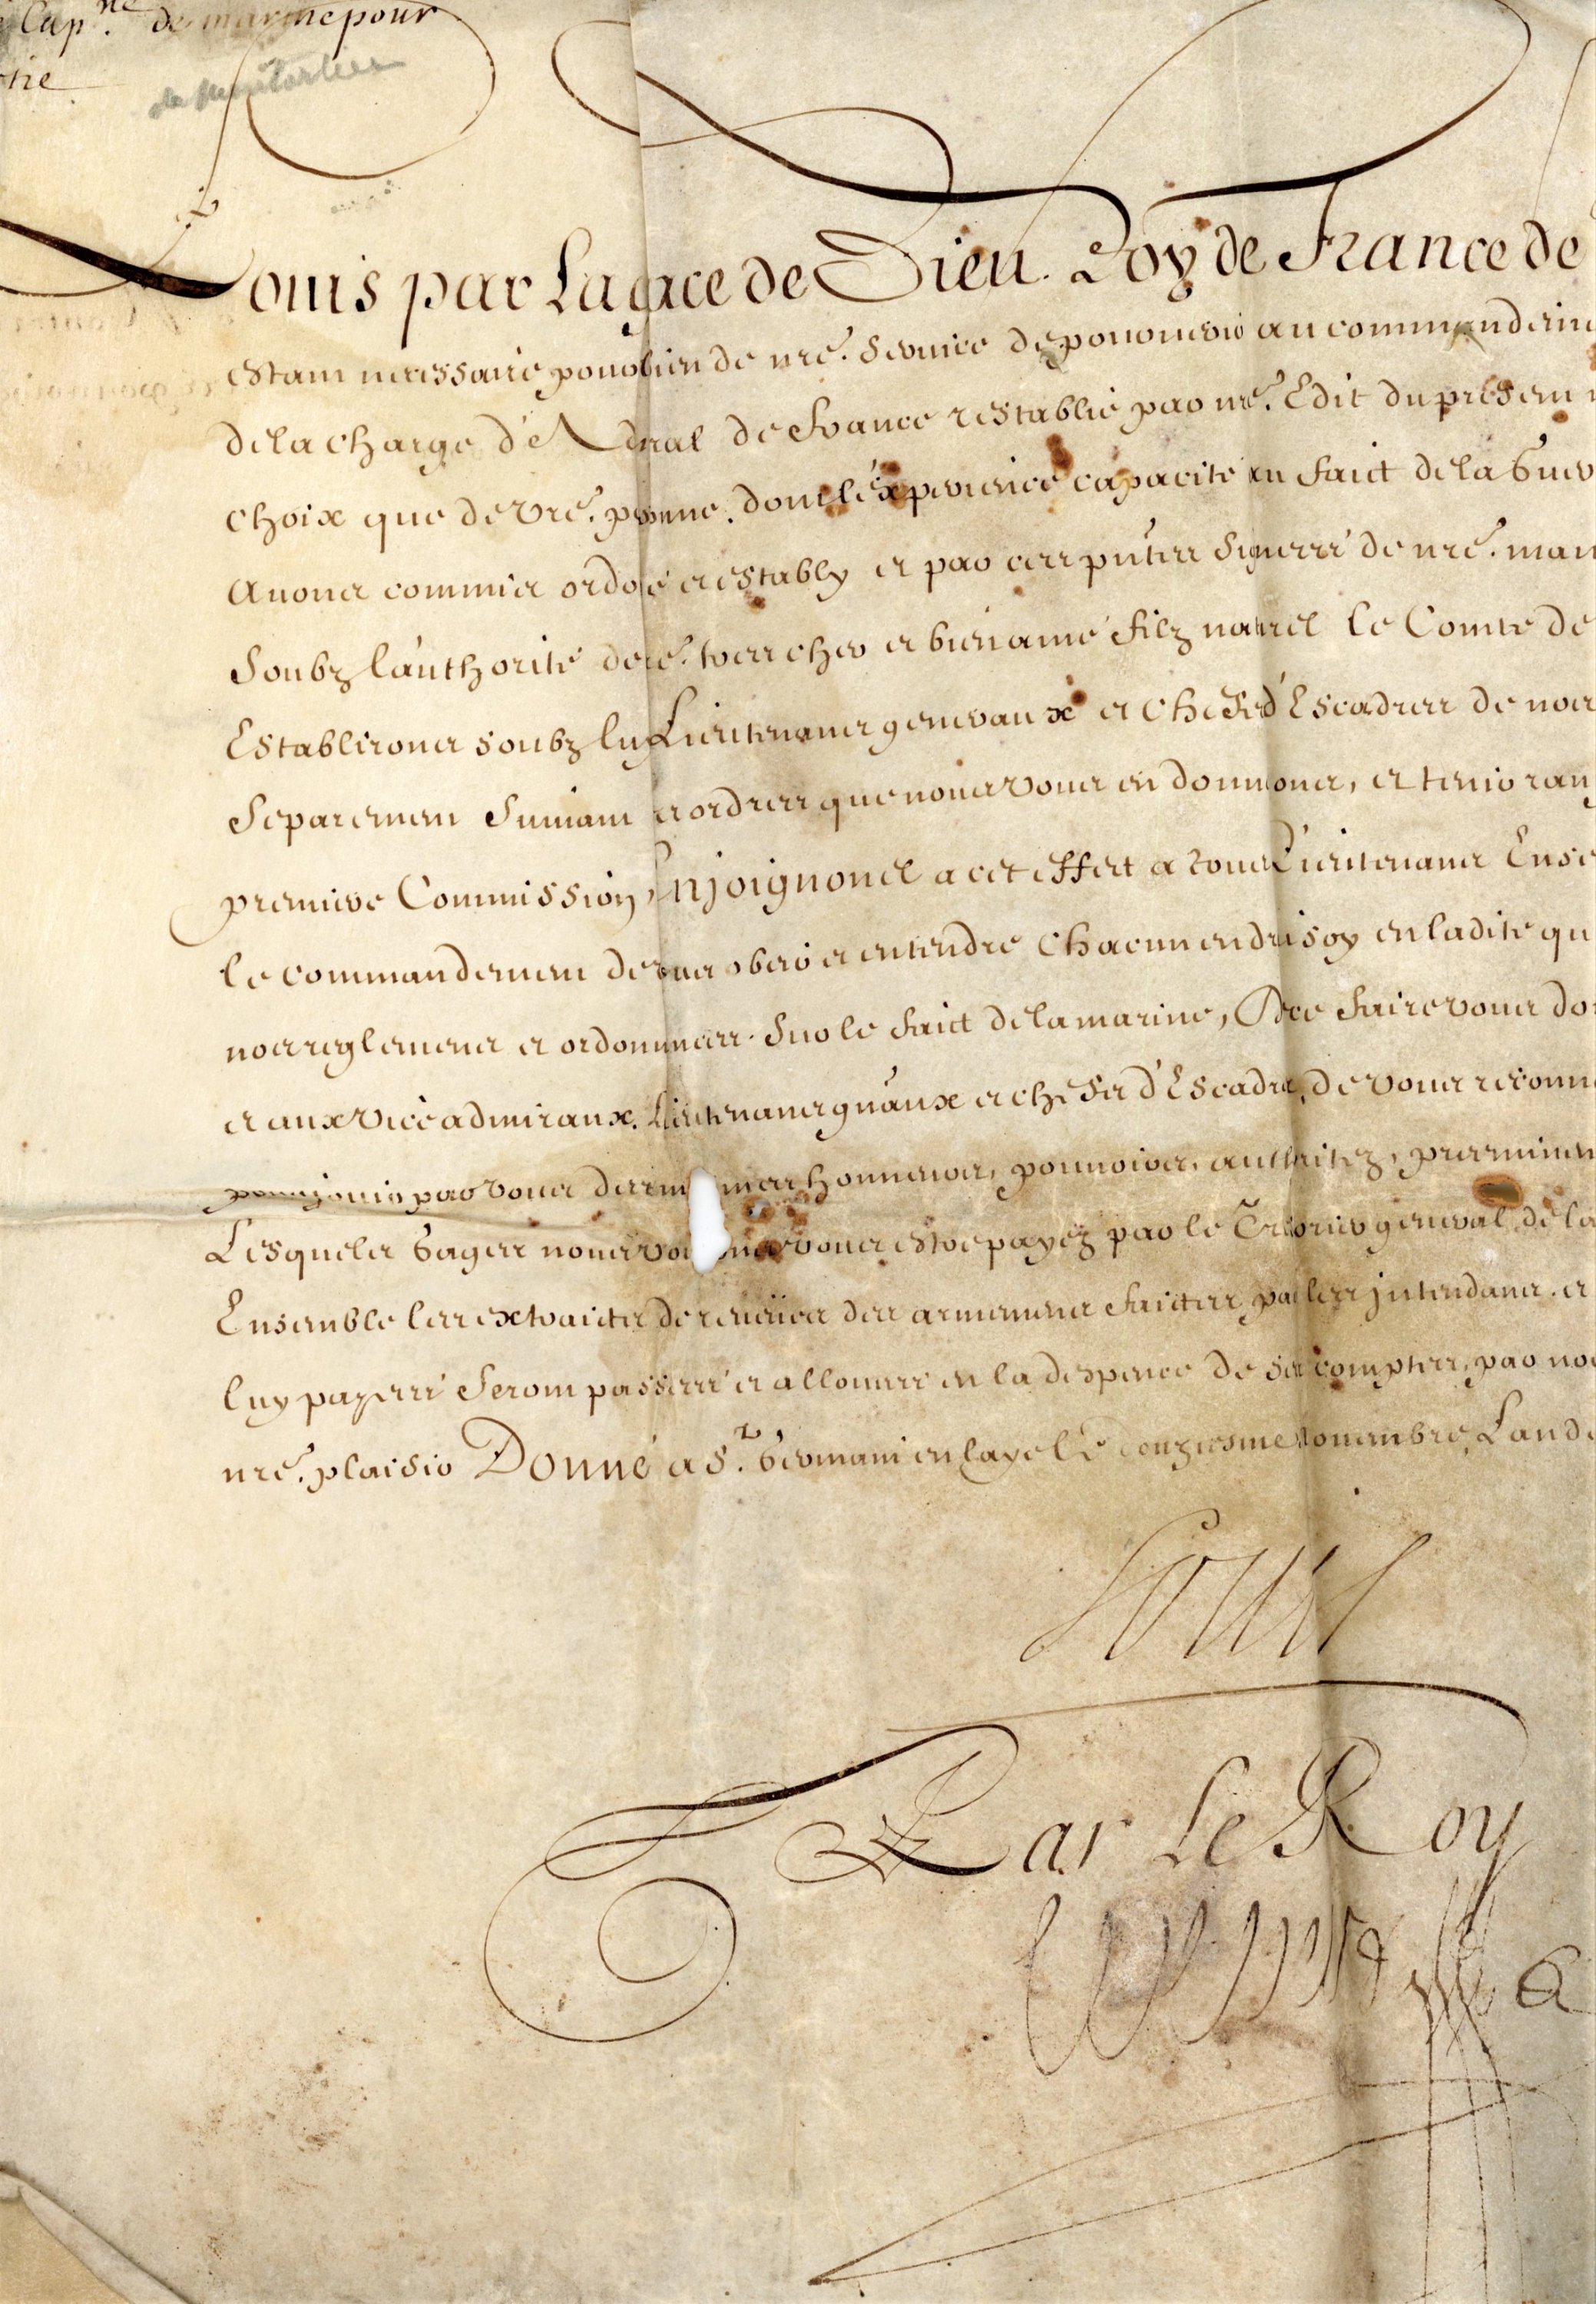 Cap.ne de marine pour
tie
Louis par La grace de Dieu Roy de France de
estant necessaire pour le bien de nre. service de pourvoir au commandem
de la charge d'Admiral de France restablie par nre. Edit du present
choix que de vre. personne. dont l'experience capacité au faict de la Guer
Avons commis ordoné et estably et par ces pntes signees de nre. main
Soubz l'authorité de nre. tres cher et bien amé filz naturel le Comte de
Establirons soubz luy Lieutenans generaux et Chefs d'Escadres de nos
Separement Suivant les ordres que nous vous en donnerons, et tenir rang
premiere Commission, Enjoignons a cet effect a tous Lieutenans Ense
le commandement de vous obeir et entendre Chacun endroit soy en ladite qu
nos reglemens et ordonnances sur le faict de la marine, De ce faire vous do
et aux Vice admiraux. Lieutenans gnaux et chefs d'Escadre, de vous reconn
jouir par vous des mesmes honneurs, pouvoirs, authoritez, preeminen
Lesquels Gages nous voulons vous estre payez par le Tresorier general de la
Ensemble les extraicts de reveües des armemens faictes par les jntendans et
luy payees seront passees et allouees en la despence de ses comptes, par nos
nre. plaisir Donné a St. Germain en Laye le douziesme novembre, L'an de
Louis
Par Le Roy